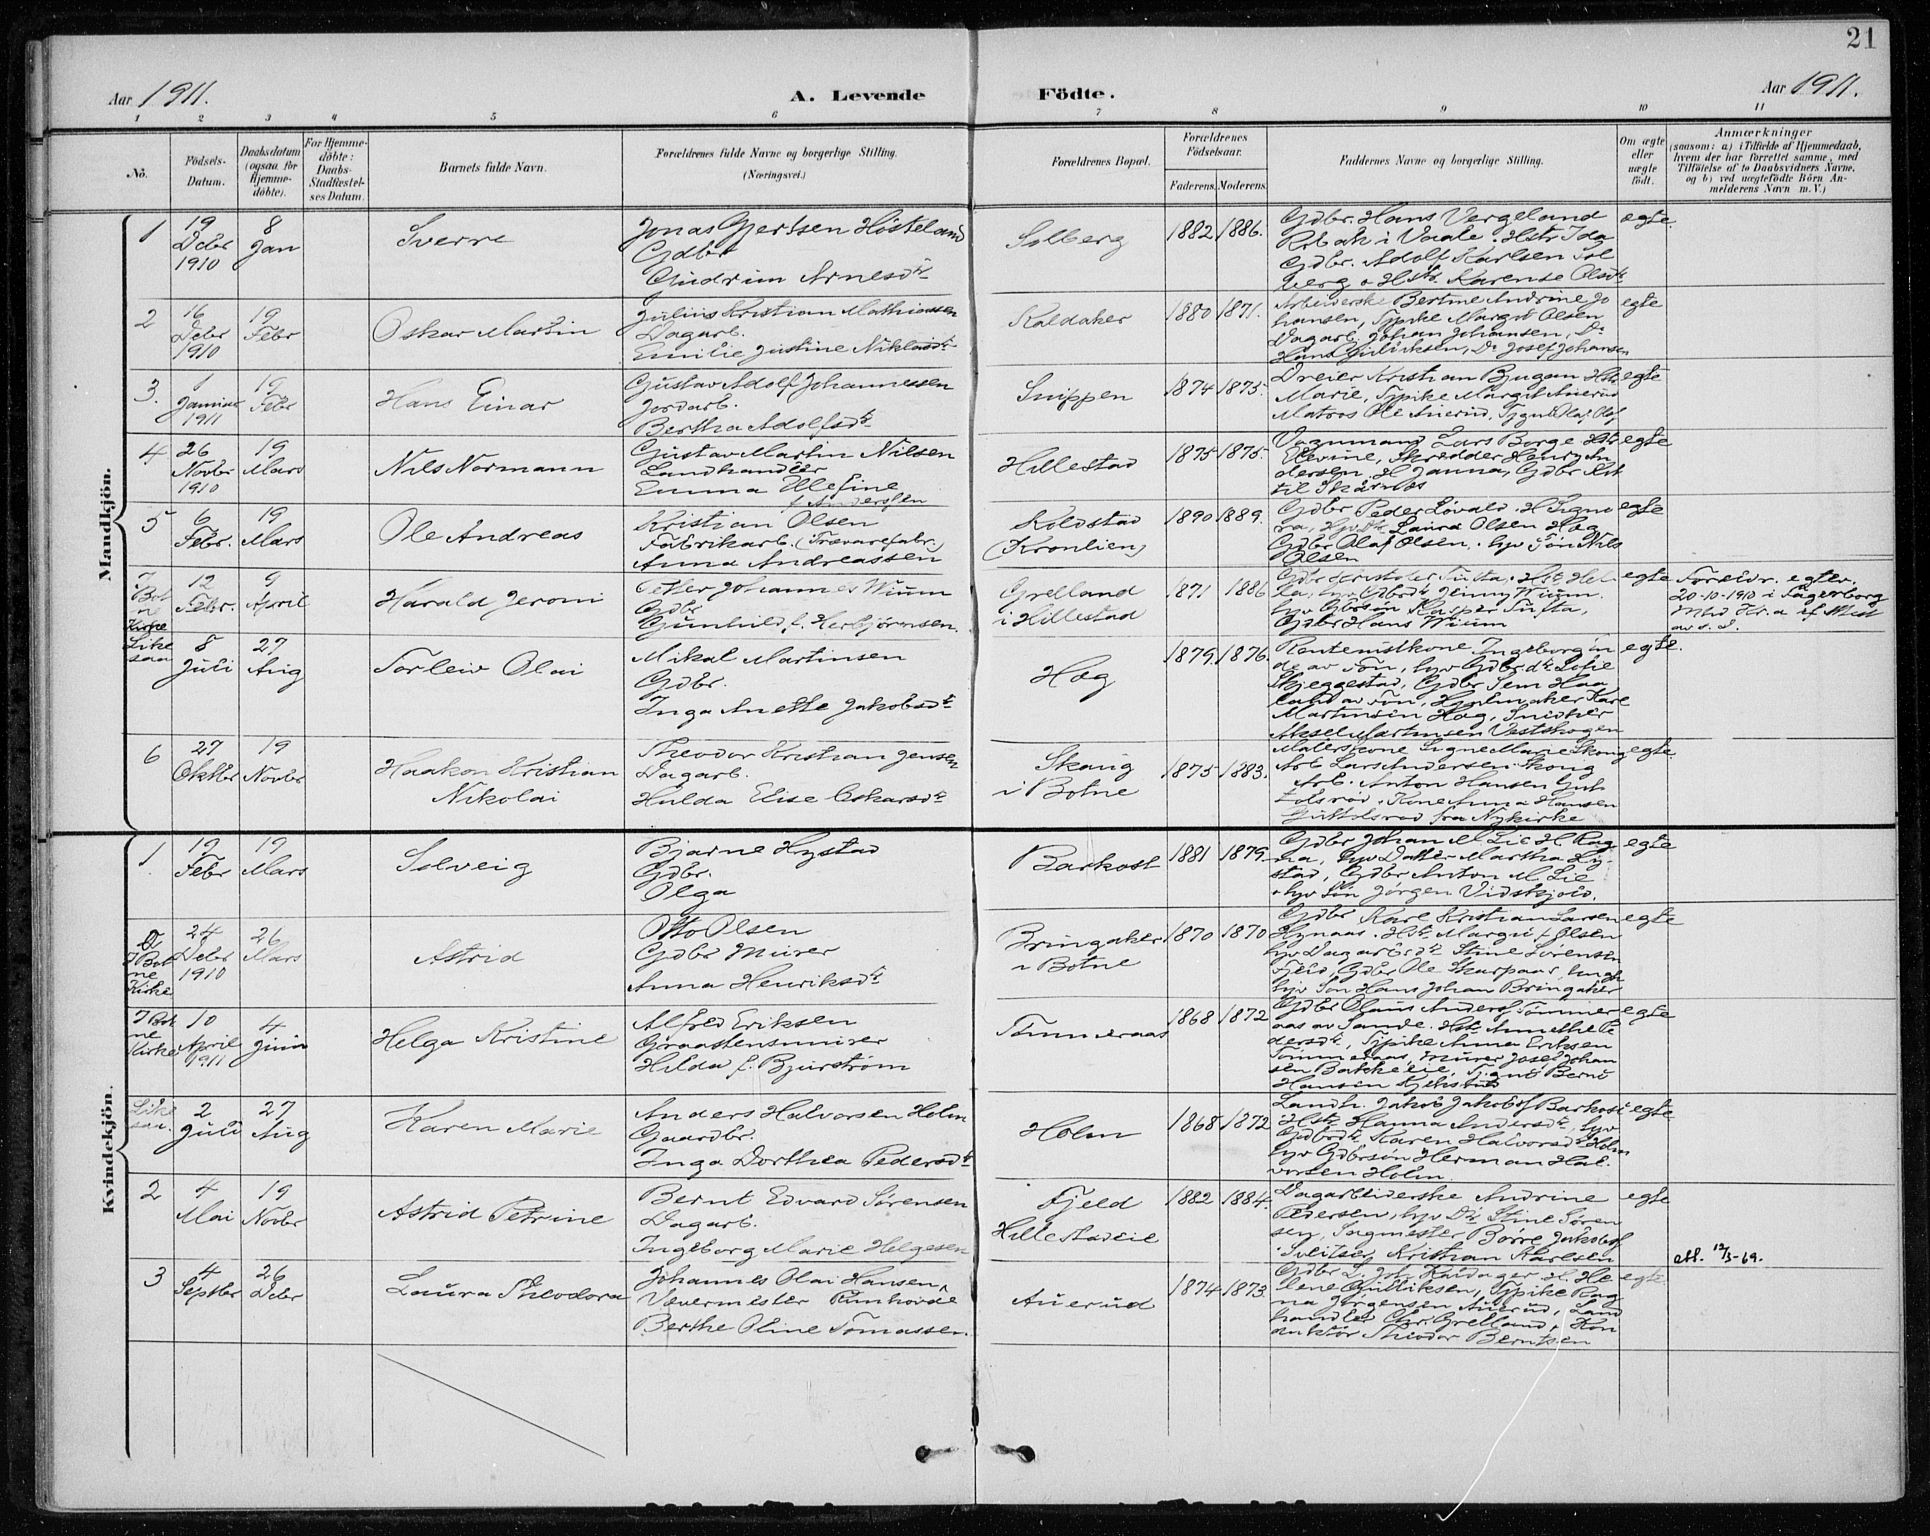 21
Aar 1911.
A. Levende
Födte.
Aar 1911.
1 2 3 4 5 6 7 8 9 10 11
No.
Födsels-
Datum.
Daabsdatum
(ogsaa for
Hjemme-
döbte).
For Hjemme-
döbte:
Daabs-
Stadfæstel-
ses Datum.
Barnets fulde Navn.
Forældrenes fulde Navne og borgerlige Stilling.
(Næringsvei.)
Forældrenes Bopæl.
Forældrenes
Födselsaar.
Faderens. Moderens.
Faddernes Navne og borgerlige Stilling.
Om ægte
eller
uægte
födt.
Anmærkninger
(saasom: a) i Tilfælde af Hjemmedaab,
hvem der har forrettet samme, med
Tilföielse af to Daabsvidners Navne,
og b) ved uægtefödte Börn An-
melderens Navn m. V.)
Mandkjön.
1
19
Debr
1910
8
Jan
Sverre
Jonas Gjertsen Hösteland
Gdbr
Gudrun Arnesdtr
Solberg
1882 1886.
Gdbr. Hans Vergeland
i Vaale. Hstr Ida
Gdbr. Adolf Karlsen Sol
berg & Hstr. Karense Olsdtr
ægte.
2
16
Debr
1910
19
Febr
Oskar Martin
Julius Kristian Mathiassen
Dagarb.
Emilie Justine Niklasdtr
Kaldaker
1880 1871.
Arbeiderske Bertine Andrine Jo
hansen, Typike Margit Olsen
Dagarb. Johan Johansen, Do
Hans Gulliksen, Do Josef Johansen
egte
3.
1
Januar
1911
19
Febr
Hans Einar
Gustav Adolf Johannessen
Jordarb.
Bertha Adolfsdtr
Snippen
1874 1875.
Dreier Kristian Bjugan Hstr
Marie, Typike Margit Auerud
Matros Ole Auerud. Tygut Olaf Olof
egte
4
26
Novbr
1910
19
Mars
Nils Normann
Gustav Martin Nilsen
Landhandler
Emma Ulefine
f. Anderssen
Hillestad
1875 1875.
Vognmand Lars Borge Hstr
Elevine, Skrædder Henry An
dersen, H Janna, Gdbr
til Skårnes
egte
5
6
Febr.
19
Mars
Ole Andreas
Kristian Olsen
Fabrikarb. (Trævarefabr.)
Anna Andreassen
Koldstad
(Kronlien)
1890 1889.
Gdbr Peder Løvald. H Signo
ra, Hjv Dtr Laura Olsen Høg
Gdbr Olaf Olsen. hjv Søn Nils
Olsen
egte
I Bot
ne
Kirke
12
Febr.
9
April
Harald Jeroni
Petter Johannes Wium
Gdbr
Gunhild f. Herbjørnsen.
Grelland
i Hillestad
1871 1886
Gdbr Kristofer Tufta. Hstr Hel
la, hjv Gdbrdtr Jenny Wium.
hjv Gbrsøn Kasper Tufta,
Gdbr Hans Wium
egte
Foreldr. egtev.
20-10-1910 i Fagerborg
Like
saa
8
Juli
27
Aug
Torleiv Olai
Mikal Martinsen
Gdbr.
Inga Anette Jakobsdtr
Høg
1879. 1876.
Rentenistkone Ingeborg
de av Søn, hjv Gdbr.dtr. Lofie
Skjeggestad, Gdbr Sem Haa
land av Søn, Hjulmaker Karl
Martinsen Høg, Snedker
Aksel Martinsen Vestskogen
egte.
6
27
Oktbr
19
Novbr
Haakon Kristian
Nikolai
Theodor Kristian Jensen
Dagarb.
Hulda Elise Oskarsdtr
Skaug
i Botne
1875 1883.
Malerskone Signe Marie Skong
Arb Lars Andersen Skong
Arb. Anton Hansen Gul
tolsrød. Kone Anna Hansen
Gultolsrød fra Nykirke
egte.
Kvindekjön.
1.
19
Febr
19
Mars
Solveig
Bjarne Hystad
Gdbr.
Olga
Barkost
1881 1879.
Gdbr Johan M Lie H Rag
na, hjv Datter Martha Hy-
stad, Gdbr Anton M Lie
& hjv Søn Jørgen Vidskjold.
egte
I Bot
ne
Kirke
24
Debr
1910
26
Mars
Astrid
Otto Olsen
Gdbr Murer
Anna Henriksdtr
Bringaker
i Botne
1870 1870
Gdbr Karl Kristian Larsen
Hynaas. Hstr Margit f Olsen
hjv Dagarb.dtr Stine Sørensen
Fjeld, Gdbr Ole Skarpaas,
hjv Søn Hans Johan Bringaker
egte
I Bot
ne
Kirke
10
April
1911
4
Juni
Helga Kristine
Alfred Eriksen
Graastensmurer
Hilda f. Bjurstrøm
Tømmeraas
1868 1872
Gdbr Olaus Anders Tømmer
aas av Sande. Hstr Annethe Pe
dersdtr, Typike Anna Eriksen
Tømmeraas, Murer Josef Johan
sen Bakkeeie, Tjgut Bernt
Hansen Kjekstad
egte
Like
saa.
2
Juli
27
Aug
Karen Marie
Anders Halvorsen Holm
Gaardbr.
Inga Dorthea Pedersdtr
Holm
1868 1872
Landh. Jakob Jakobsf Barkost
Hstr Hanna Andersdtr, hjv
Gdbrdtr Karen Halvorsdtr Holm
hjv Gdbrsøn Herman Hal-
vorsen Holm
egte
2
4
Mai
19
Novbr
Astrid Petrine
Bernt Edvard Sørensen
Dagarb.
Ingeborg Marie Helgesen
Fjeld
Hillestadeie
1882 1884.
Dagarbeiderske Andrine
Pedersen, hjv Dtr Stine Søren
sen, Sagmester Børre Jakobsf
Sveitser Kristian Karlsen
egte
3
4
Septbr
26
Debr
Laura Theodora
Johannes Olai Hansen,
Vævermester Runhovde
Berthe Oline Tomassen.
Auerud
1874 1873
Gdbr L Joh. Kaldager H. He
lene Gulliksen, Typike Rag
na Jørgensen Auerud, Land
handler Chr. Grelland, Kon
duktør Theodor Berntsen
egte.
att. 12/3-69.